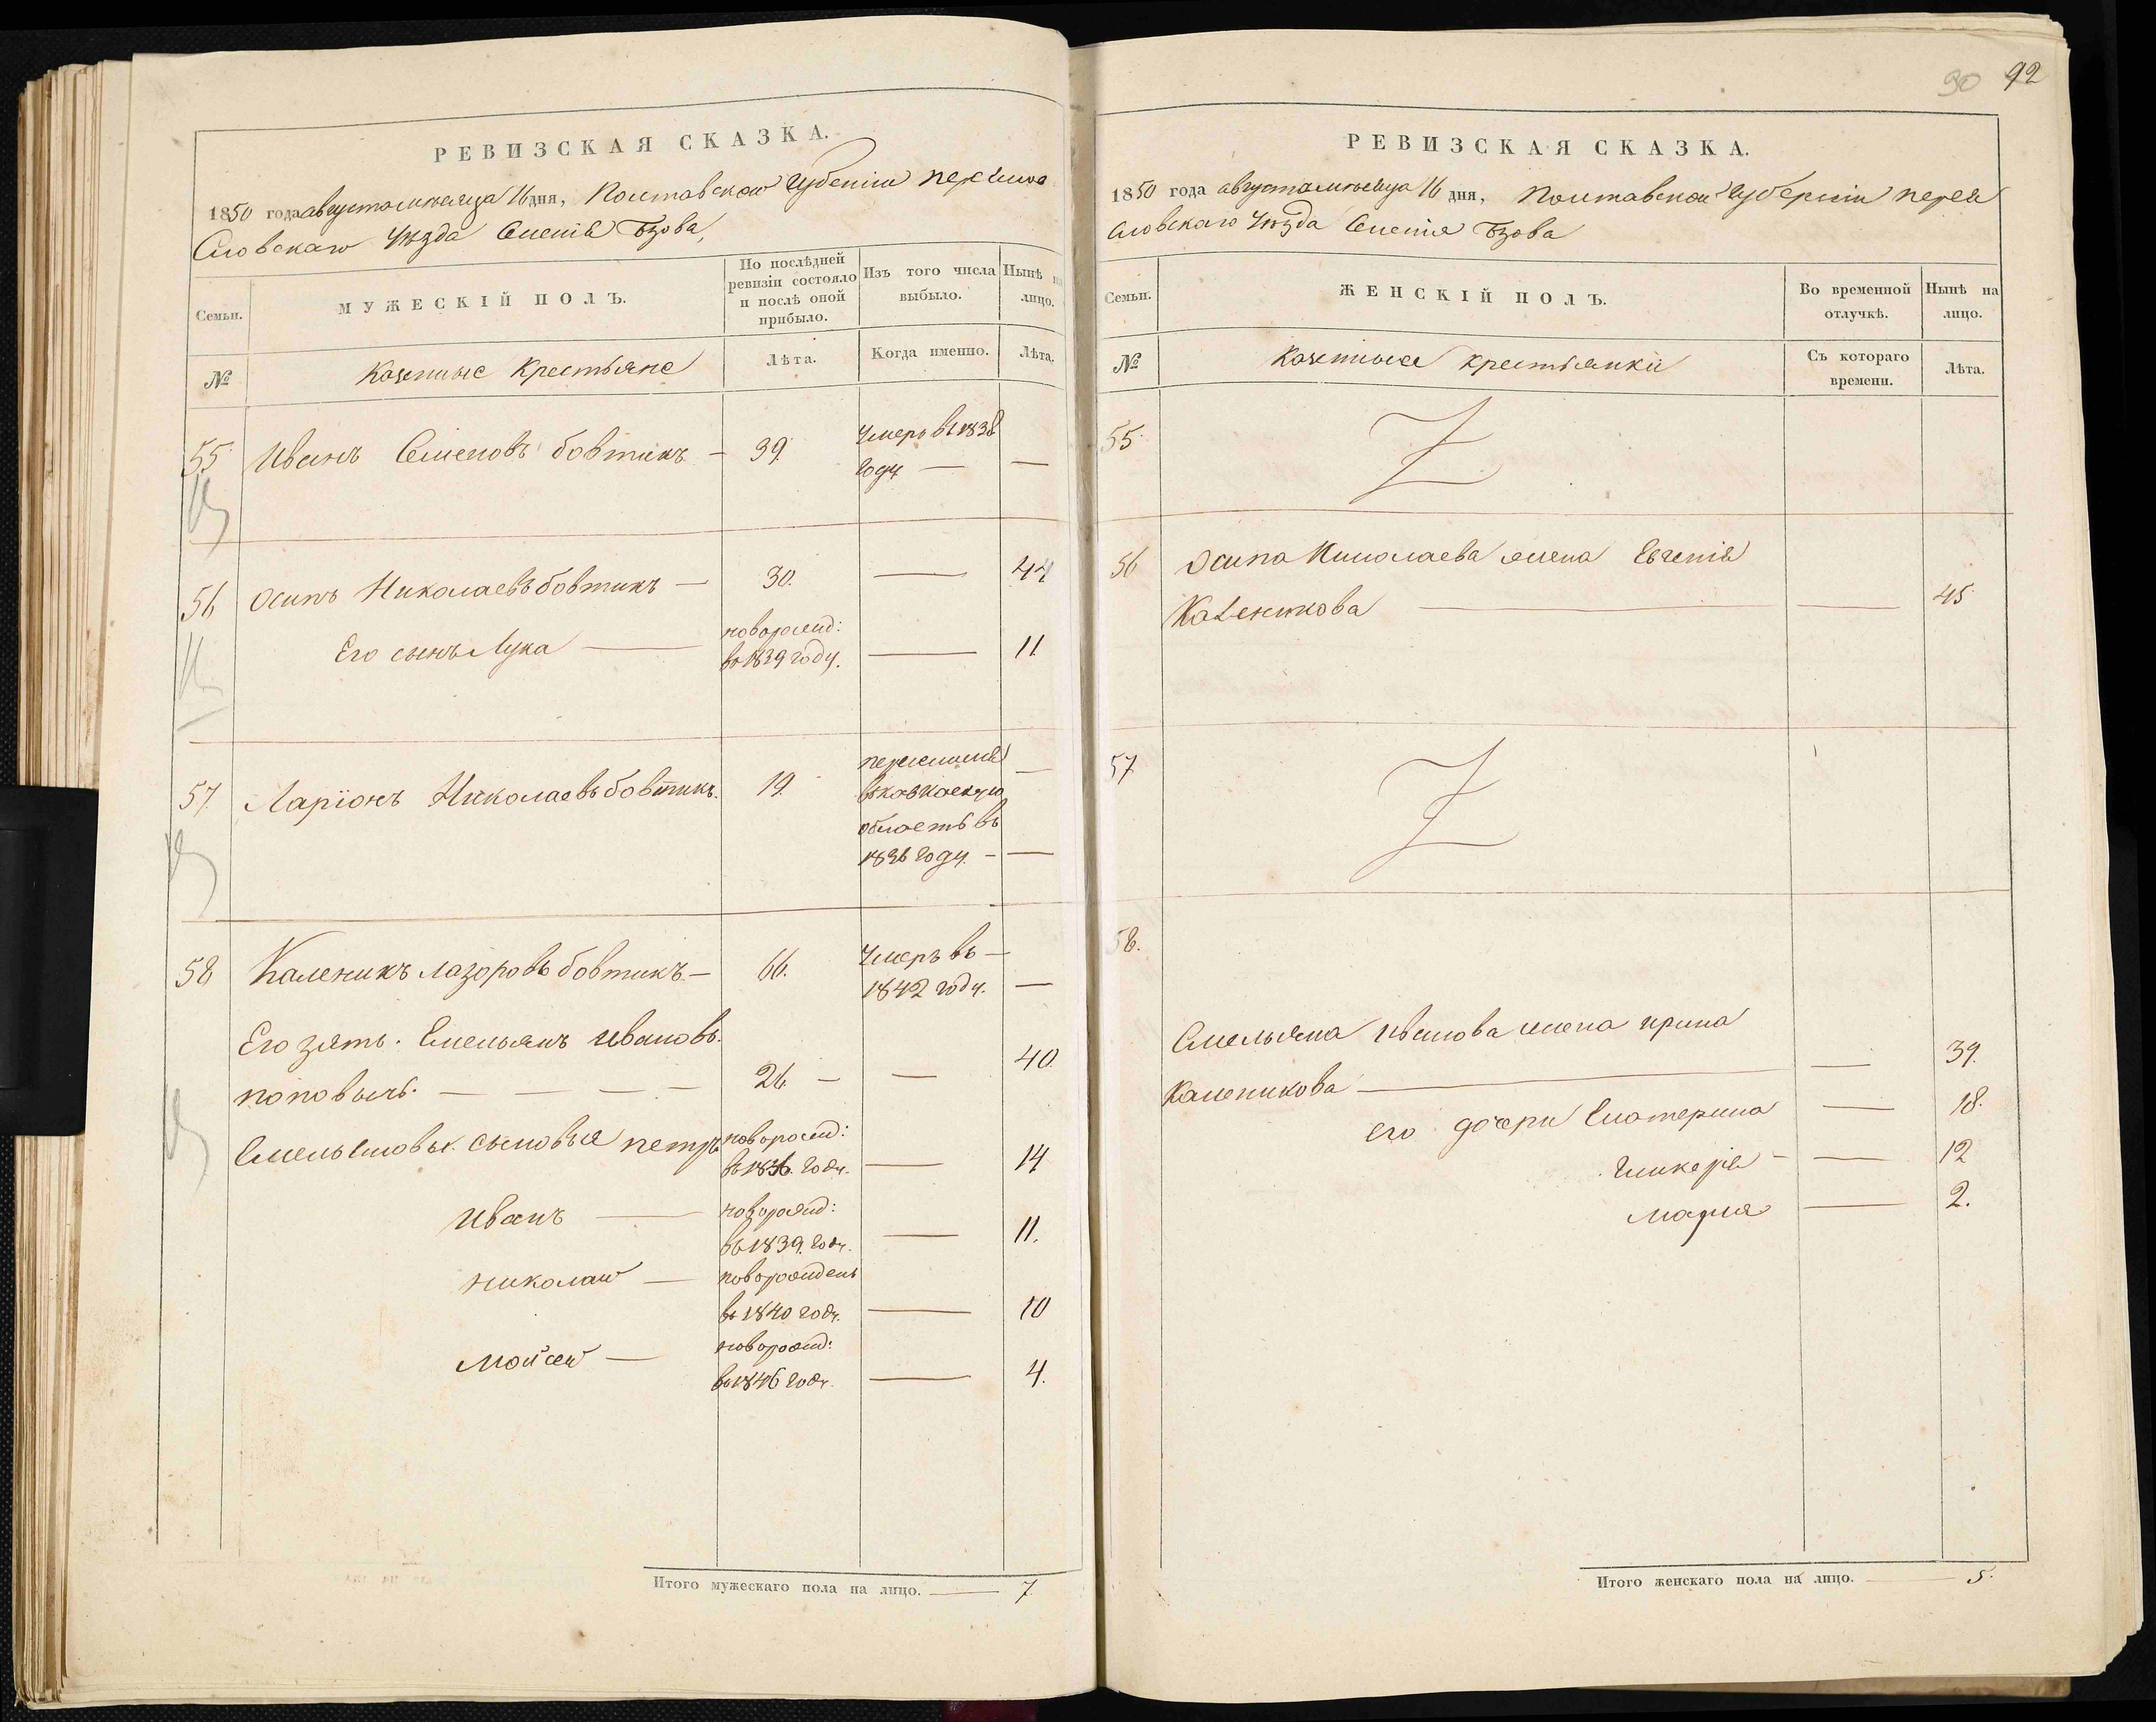 РЕВИЗСКАЯ СКАЗКА.
1850 года августа мѣсяца 16 дня, Полтавской Губерніи Перея
словскаго Уѣзда Селенія Бзова,
Семьи.
МУЖЕСКІЙ ПОЛЪ.
По послѣдней ревизіи состояло и послѣ оной прибыло.
Изъ того числа выбыло.
Нынѣ на лицо.
№
Казенные Крестьяне
Лѣта.
Когда именно.
Лѣта.
55 Иванъ Семеновъ бовтикъ — 39. Умеръ въ 1838
году — —
56 Осипъ Николаевъ бовтикъ — 30. — 44
Его сынъ Лука — новорожд:
въ 1839 году. — 11
57. Ларіонъ Николаевъ бовтикъ. 19. —
въ кавказскую
область въ
1836 году. — —
58 Каленикъ Лазоровъ бовтикъ — 66. Умеръ въ —
1842 году. —
Его зять. Емельянъ Ивановъ.
поповычъ. — — — — 26 — — 40.
Емельяновы. сыновья петръ новорожд:
въ 1836. году. — 14
Иванъ — новорожд:
въ 1839. году. — 11.
Николай — новорожденъ
въ 1840 году. — 10
Мойсей — новорожд:
въ 1846 году. — 4.
Итого мужескаго пола на лицо. — 7.
90 92
РЕВИЗСКАЯ СКАЗКА.
1850 года августа мѣсяца 16 дня, Полтавской Губерніи перея
словскаго Уѣзда Селенія Бзова
Семьи.
ЖЕНСКІЙ ПОЛЪ.
Во временной отлучкѣ.
Нынѣ на лицо.
№
Казенные крестьянки
Съ котораго времени.
Лѣта.
55
56 Осипа Николаева жена Евгенія
— — 45
57
58.
Емельяна Иванова жена ирина
Каленикова — — 39.
его дочери Екатерина — 18.
Гликерія — — 12
Марія — 2.
Итого женскаго пола на лицо. — 5.